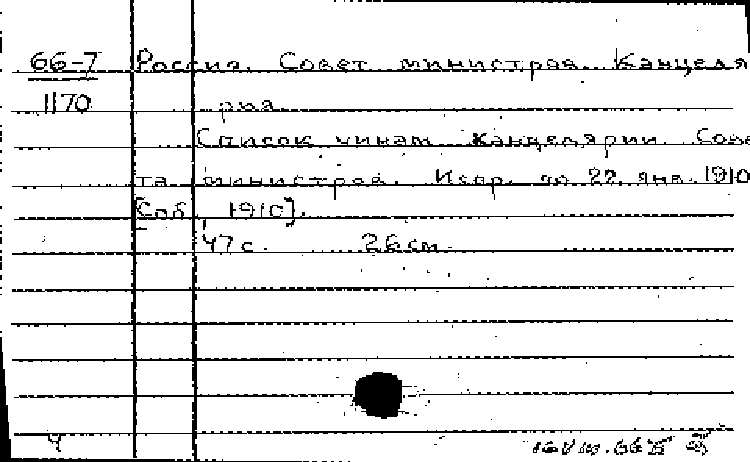 66-7 Россия. Совет министров. Канцеля
1170 рия.
Список чинам канцелярии Сове
та министров. Испр. по 22 янв. 1910
[Спб., 1910].
47 с. 26 см.
Ч